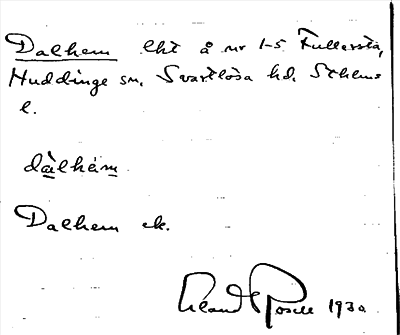 Dalhem lht å nr 1-5 Fullersta,
Huddinge sn, Svartlösa hd, Sthlms
l.
dàlhém
Dalhem ek.
1930